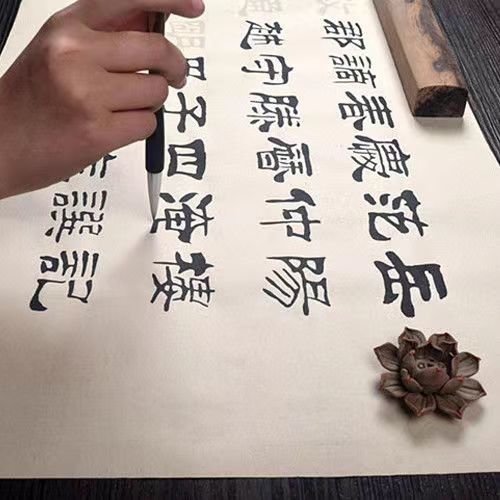 岳陽樓記
范仲淹譔
慶曆四
春滕子
謫守巴
郡越明